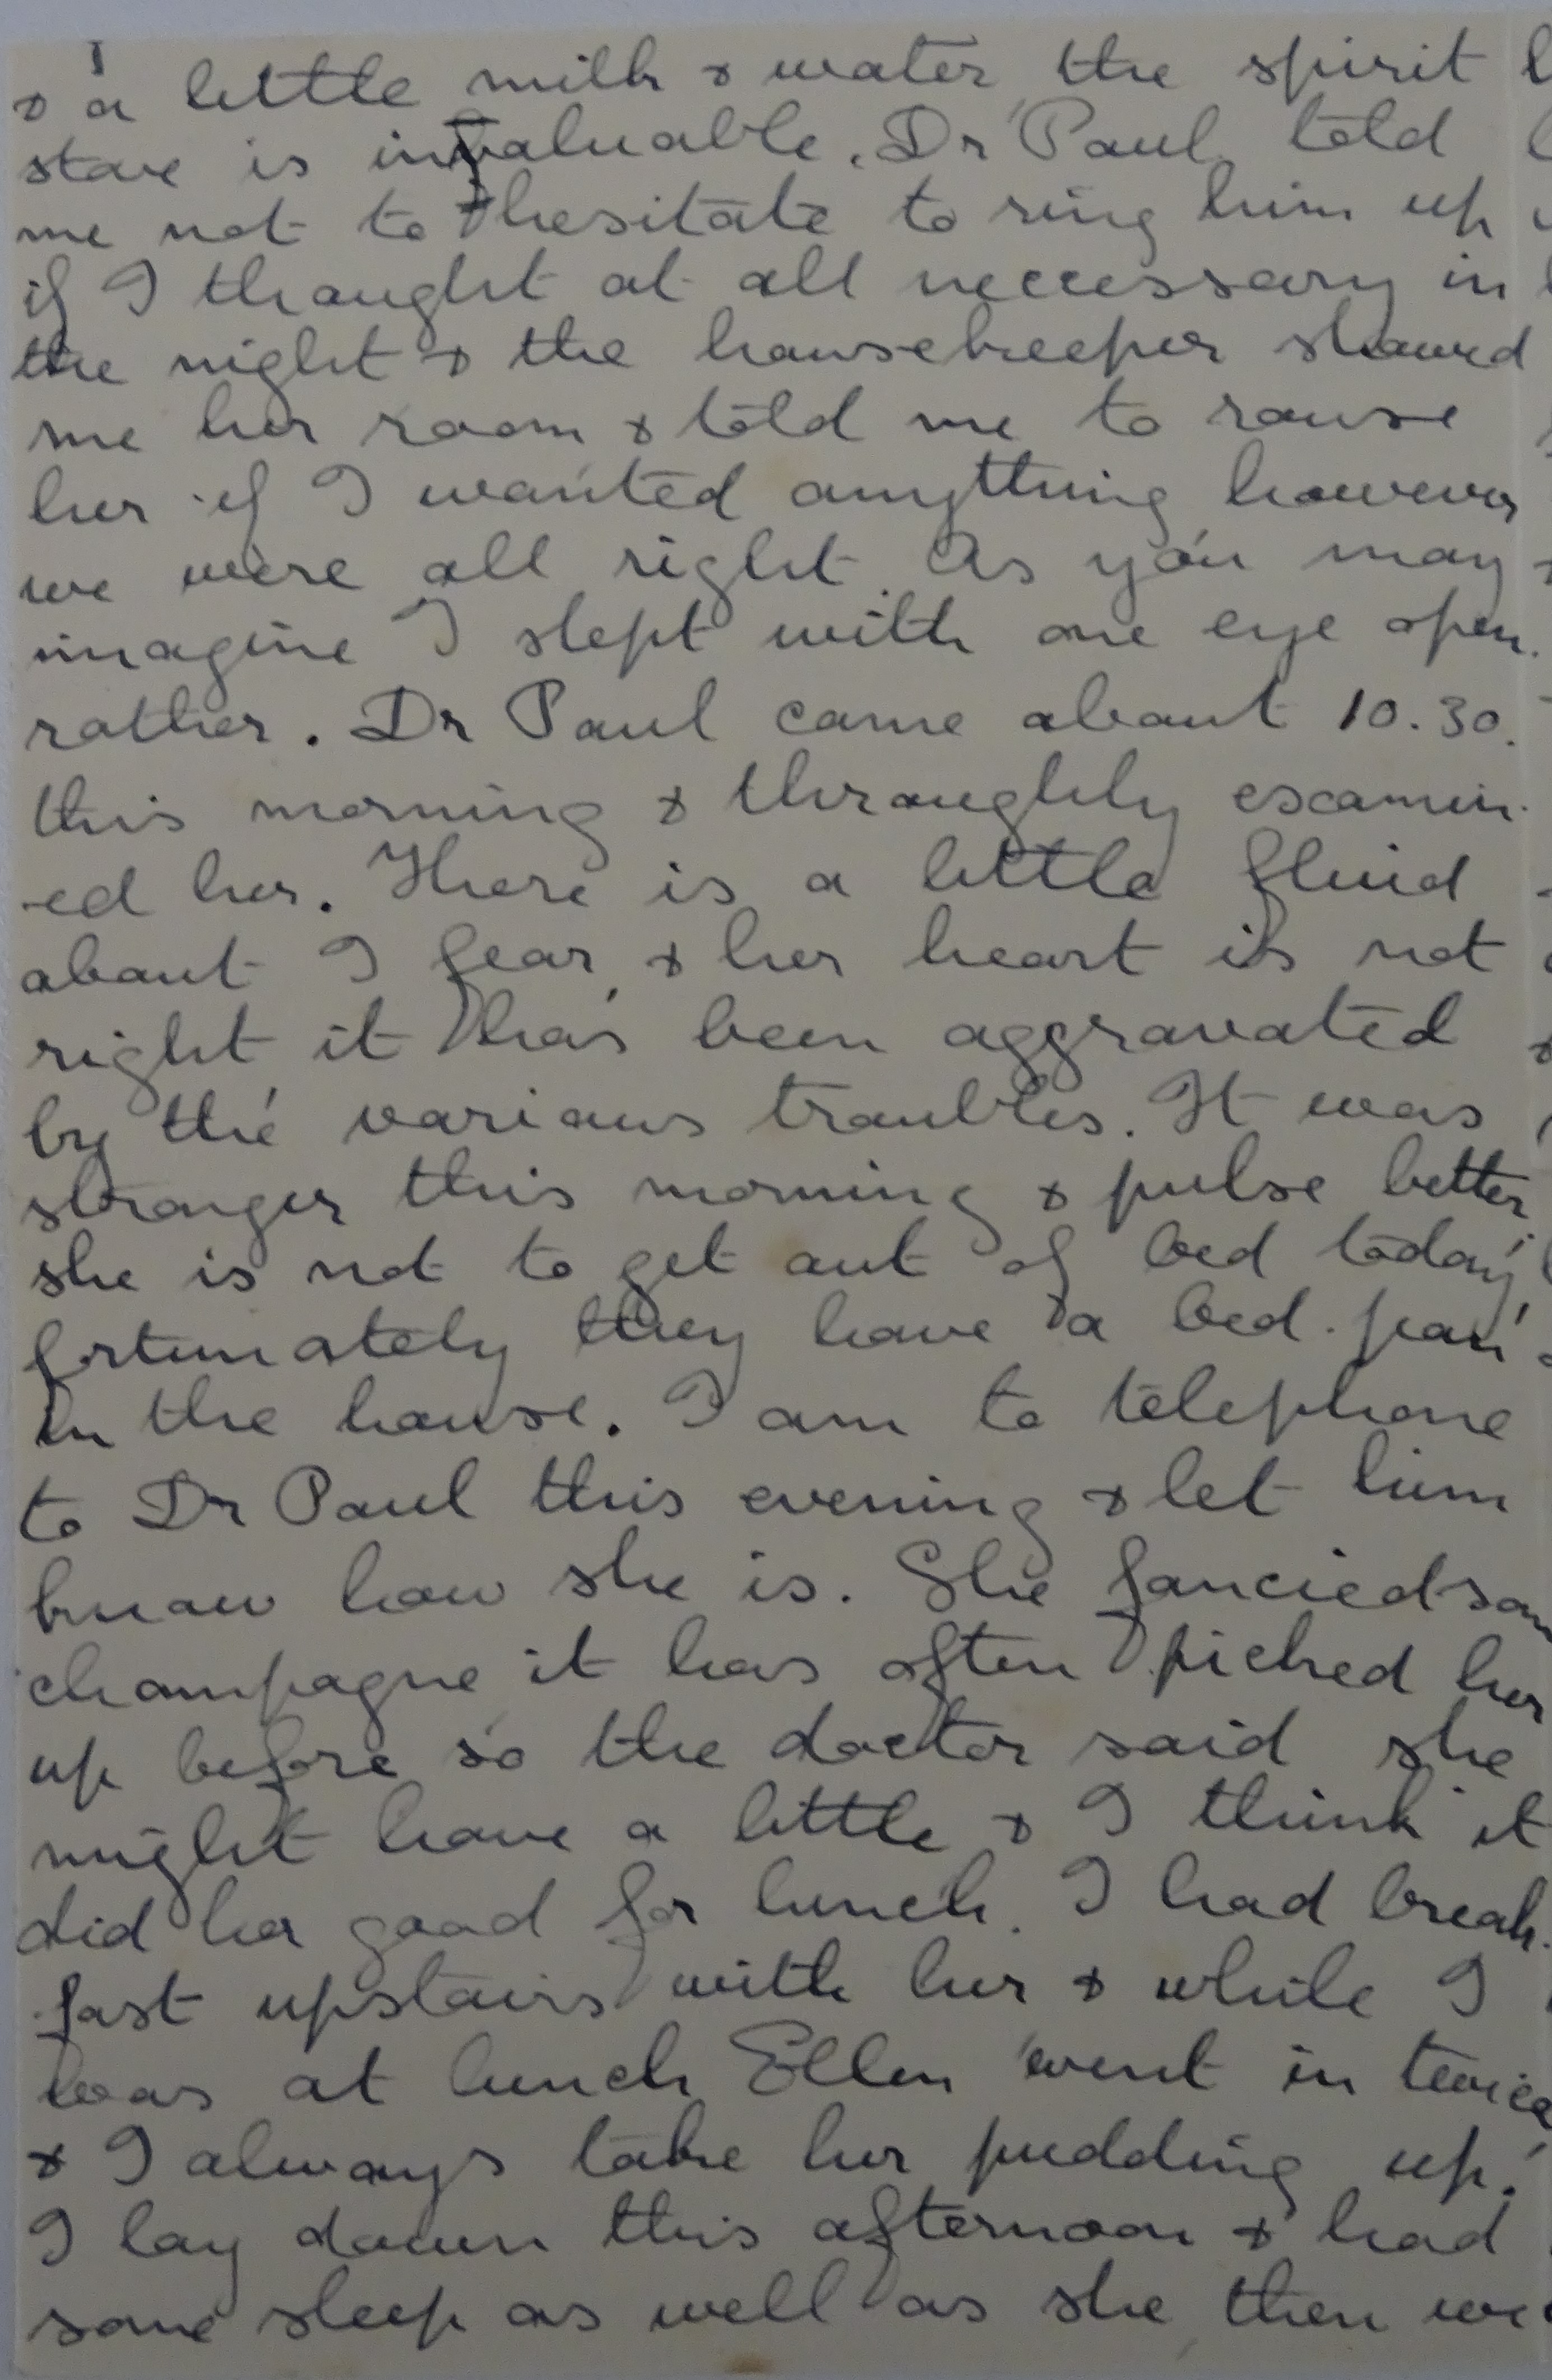 & a little milk & water, the spirit
stove is invaluable. Dr Paul told
me not to hesitate to ring him up
if I thought at all neccessary in
the night & the housekeeper showed
me her room & told me to rouse
her if I wanted anything however
we were all right. As you may
imagine I slept with one eye open
rather. Dr Paul came about 10.30.
this morning & throughly examin-
-ed her. There is a little fluid
about I fear, & her heart is not
right it has been aggravated
by the various troubles. It was
stronger this morning & pulse better
she is not to get out of bed today,
fortunately they have a bed-pan
in the house. I am to telephone
to Dr Paul this evening & let him
know how she is. She fancied som
champagne it has often picked her
up before so the doctor said she
might have a little & I think it
did her good for lunch. I had break-
-fast upstairs with her & while I
was at lunch Ellen went in twice
& I always take her pudding up.
I lay down this afternoon & had
some sleep as well as she, then we